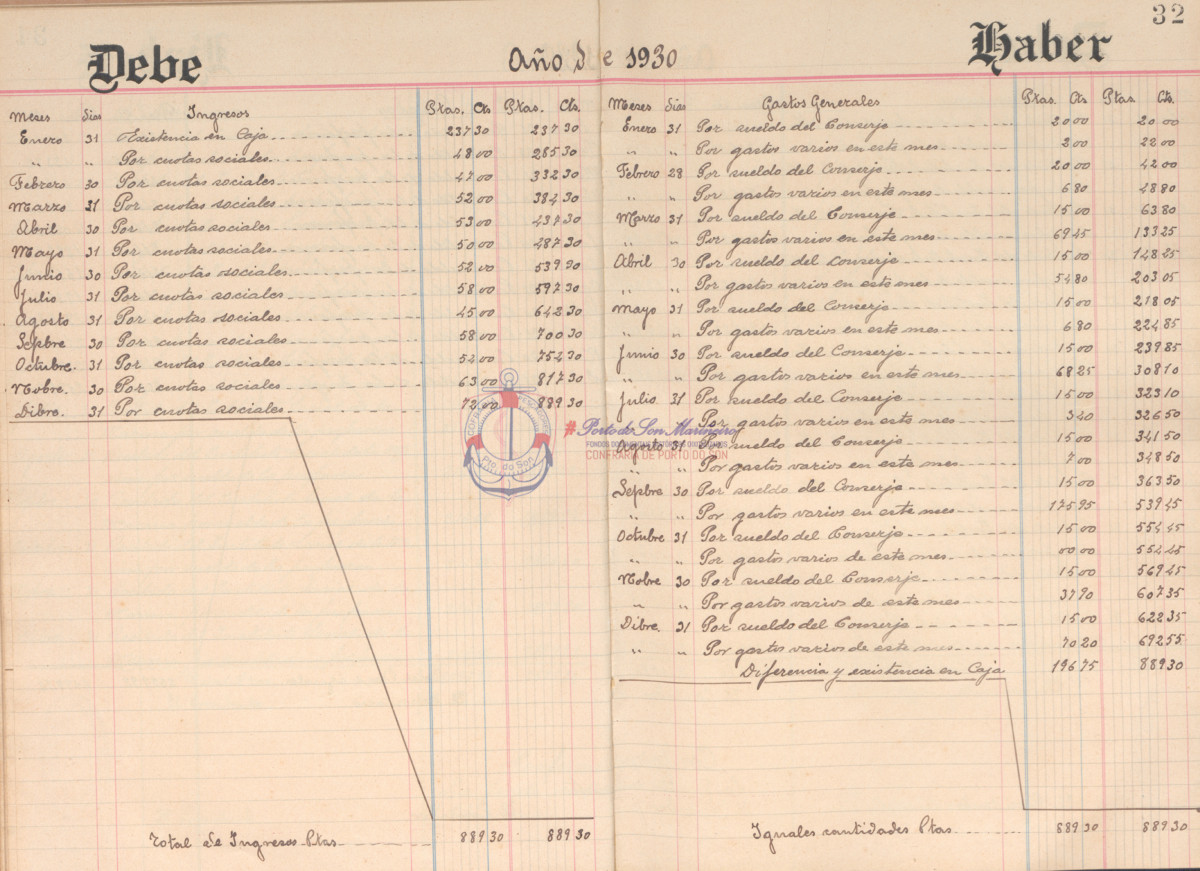 32
Debe
Año de 1930
Haber
Meses Dias Ingresos Ptas. Cts Ptas. Cts.
Enero 31 Existencia en Caja 237 30 237 30
„ „ Por cuotas sociales. 48 00 285 30
Febrero 30 Por cuotas sociales 47 00 332 30
Marzo 31 Por cuotas sociales 52 00 384 30
Abril 30 Por cuotas sociales 53 00 437 30
Mayo 31 Por cuotas sociales 50 00 487 30
Junio 30 Por cuotas sociales 52 00 539 30
Julio 31 Por cuotas sociales 58 00 597 30
Agosto 31 Por cuotas sociales 45 00 642 30
Sepbre 30 Por cuotas sociales 58 00 700 30
Octubre. 31 Por cuotas sociales 54 00 754 30
Nobre. 30 Por cuotas sociales 63 00 817 30
Dibre. 31 Por cuotas sociales 72 00 889 30
Total de Ingresos Ptas 889 30 889 30
Meses Dias Gastos Generales Ptas. Cts Ptas. Cts.
Enero 31 Por sueldo del Conserje 20 00 20 00
„ „ Por gastos varios en este mes 2 00 22 00
Febrero 28 Por sueldo del Conserje 20 00 42 00
„ „ Por gastos varios en este mes 6 80 48 80
Marzo 31 Por sueldo del Conserje 15 00 63 80
„ „ Por gastos varios en este mes 69 45 133 25
Abril 30 Por sueldo del Conserje 15 00 148 25
„ „ Por gastos varios en este mes 54 80 203 05
Mayo 31 Por sueldo del Conserje 15 00 218 05
„ „ Por gastos varios en este mes 6 80 224 85
Junio 30 Por sueldo del Conserje 15 00 239 85
„ „ Por gastos varios en este mes 68 25 308 10
Julio 31 Por sueldo del Conserje 15 00 323 10
Por gastos varios en este mes 3 40 326 50
Agosto 31 Por sueldo del Conserje 15 00 341 50
„ „ Por gastos varios en este mes 7 00 348 50
Sepbre 30 Por sueldo del Conserje 15 00 363 50
„ „ Por gastos varios en este mes 175 95 539 45
Octubre 31 Por sueldo del Conserje 15 00 554 45
„ „ Por gastos varios de este mes 00 00 554 45
Nobre 30 Por sueldo del Conserje 15 00 569 45
„ „ Por gastos varios de este mes 37 90 607 35
Dibre. 31 Por sueldo del Conserje 15 00 622 35
„ „ Por gastos varios de este mes 70 20 692 55
Diferencia y existencia en Caja 196 75 889 30
Iguales cantidades Ptas 889 30 889 30
# Porto do Son Mariñeiro
CONFRARÍA DE PORTO DO SON
Pto. do Son